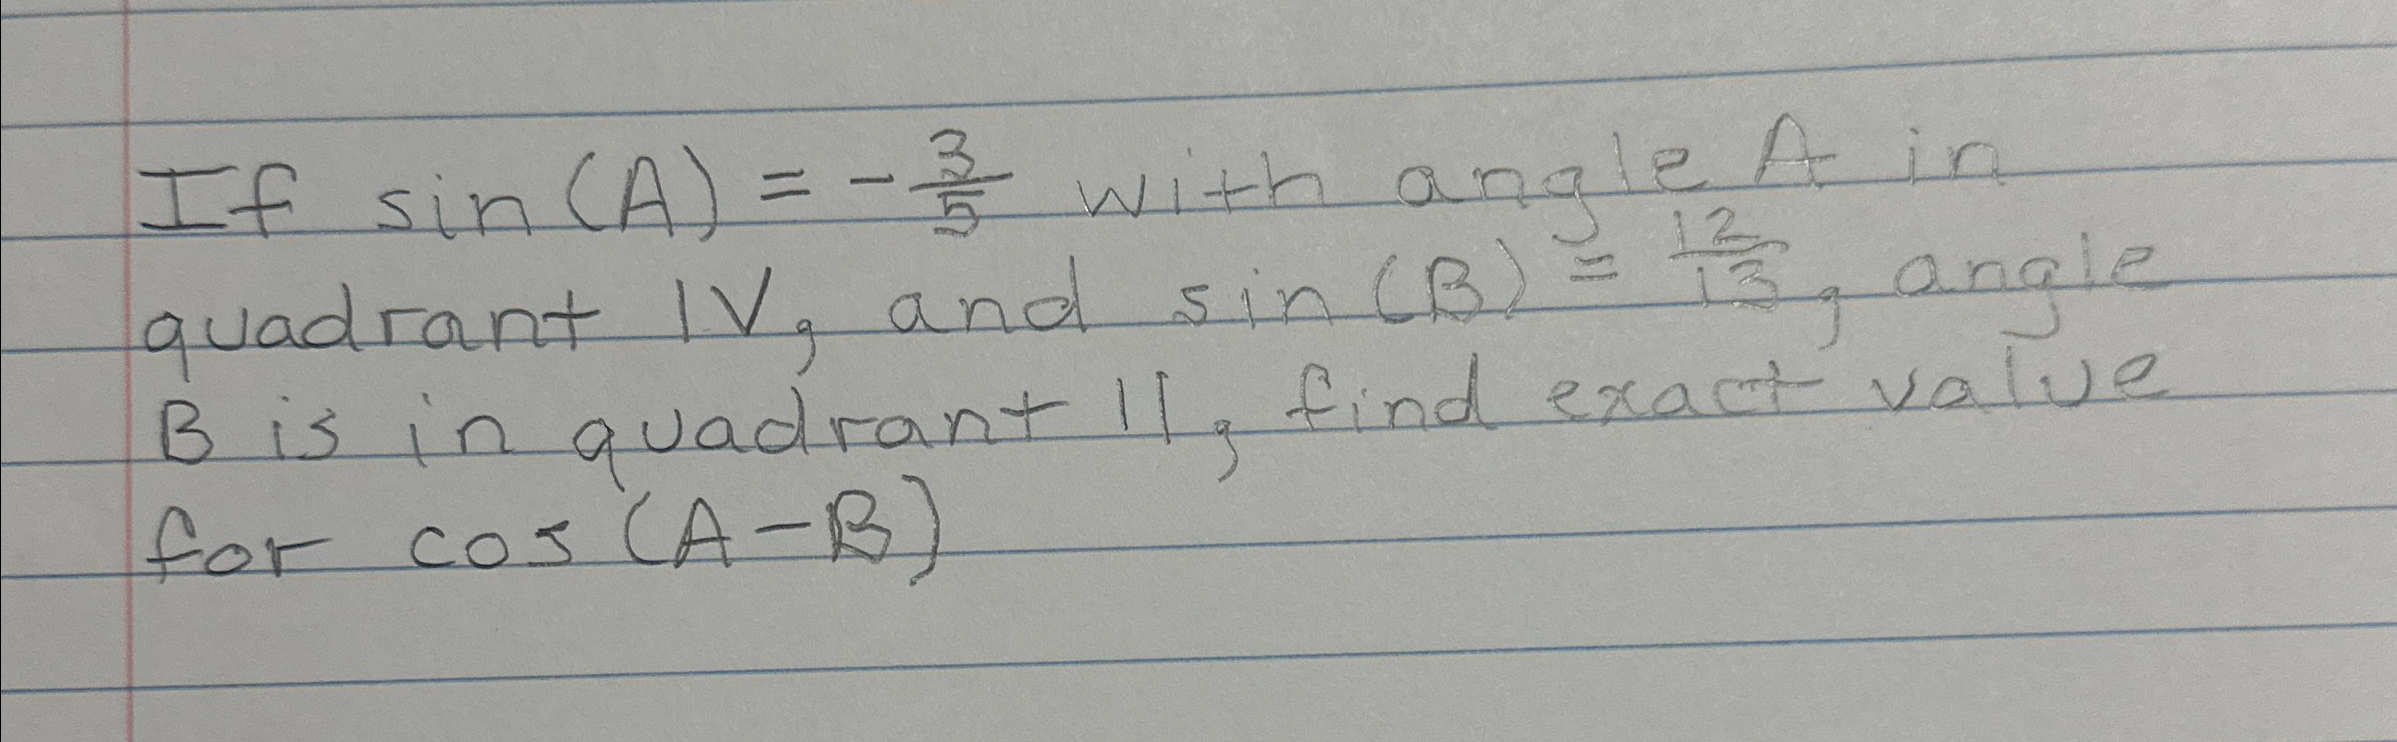 If sin(A) = -3/5 with angle A in
quadrant IV, and sin(B) = 12/13, angle
B is in quadrant II, find exact value
for cos(A-B)